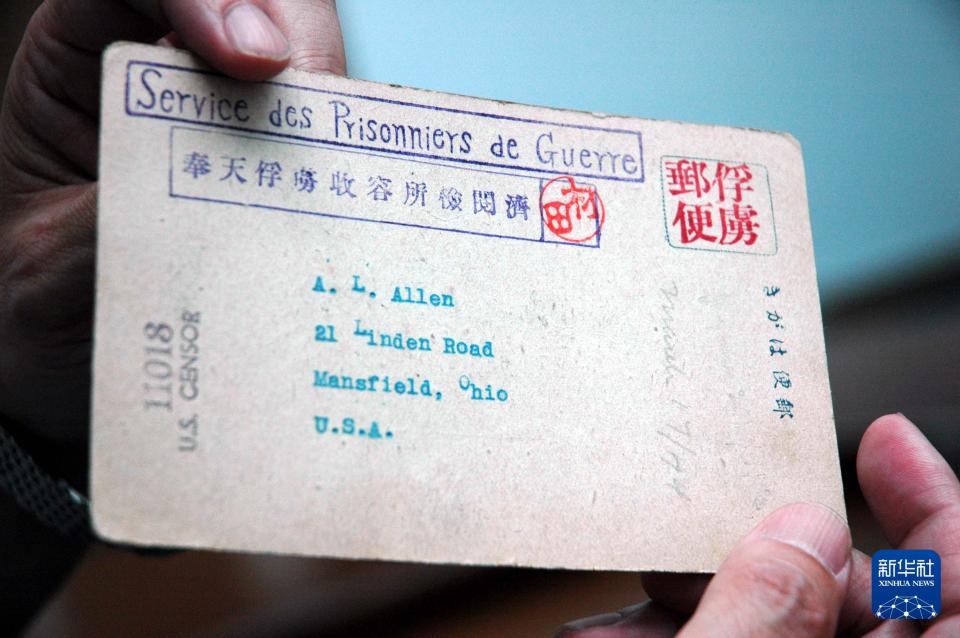 Service des Prisonniers de Guerre
奉天俘虜收容所檢閲濟
村田
俘虜
郵便
きがは便郵
A. L. Allen
21 Linden Road
Mansfield, Ohio
U.S.A.
11018
U.S. CENSOR
新华社
XINHUA NEWS